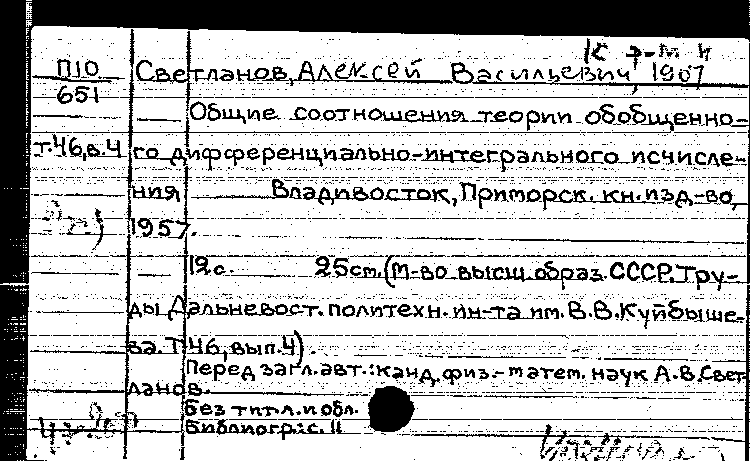 П10 Светланов, Алексей Васильевич, 1907
651
Общие соотношения теории обобщенно-
т.46,в.4 го дифференциально-интегрального исчисле-
ния Владивосток, Приморск. кн. изд-во,
1957.
12с. 25см. (М-во высш. образ. СССР. Тру-
ды Дальневост. политехн. ин-та им. В.В.Куйбыше-
ва. Т 46, вып. 4).
Перед загл. авт.: канд. физ.-матем. наук А.В.Свет-
ланов.
Без тит. л. и обл.
Библиогр.: с. 11